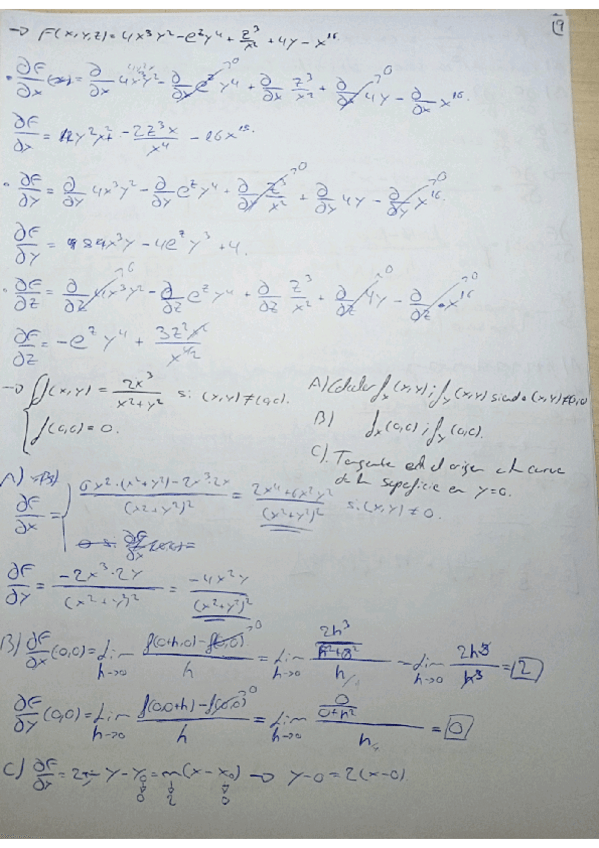 19
→ F(x,y,z) = 4x³y² - e^z y⁴ + z³/x² + 4y - x¹⁶
• ∂F/∂x = ∂/∂x 4x³y² - ∂/∂x e^z y⁴ →0 + ∂/∂x z³/x² + ∂/∂x 4y →0 - ∂/∂x x¹⁶.
∂F/∂x = 12y²x² + -2z³x/x⁴ - 16x¹⁵.
• ∂F/∂y = ∂/∂y 4x³y² - ∂/∂y e^z y⁴ + ∂/∂y z³/x² →0 + ∂/∂y 4y - ∂/∂y x¹⁶ →0
∂F/∂y = 8x³y - 4e^z y³ + 4.
• ∂F/∂z = ∂/∂z 4x³y² →0 - ∂/∂z e^z y⁴ + ∂/∂z z³/x² + ∂/∂z 4y →0 - ∂/∂z x¹⁶ →0
∂F/∂z = -e^z y⁴ + 3z²x²/x⁴²
→ f(x,y) = 2x³/x²+y² si (x,y)≠(0,0).
f(0,0) = 0.
A) Calcular fx(x,y); fy(x,y) siendo (x,y)≠(0,0)
B) fx(0,0); fy(0,0).
C). Tangente en el origen a la curva
de la superficie en y=0.
A)
∂F/∂x = 6x²·(x²+y²)-2x³·2x/(x²+y²)² = 2x⁴+6x²y²/(x²+y²)² si (x,y)≠0.
∂F/∂y = -2x³·2y/(x²+y²)² = -4x²y/(x²+y²)²
B) ∂F/∂x (0,0) = Lim h→0 f(0+h,0)-f(0,0) →0/h = Lim h→0 2h³/h²+0²/h = Lim h→0 2h³/h³ = 2
∂F/∂y (0,0) = Lim h→0 f(0,0+h)-f(0,0) →0/h = Lim h→0 0/0+h²/h = 0
C) ∂F/∂y = 2 y-y₀ = m(x-x₀) → y-0 = 2(x-0).
0 2 0